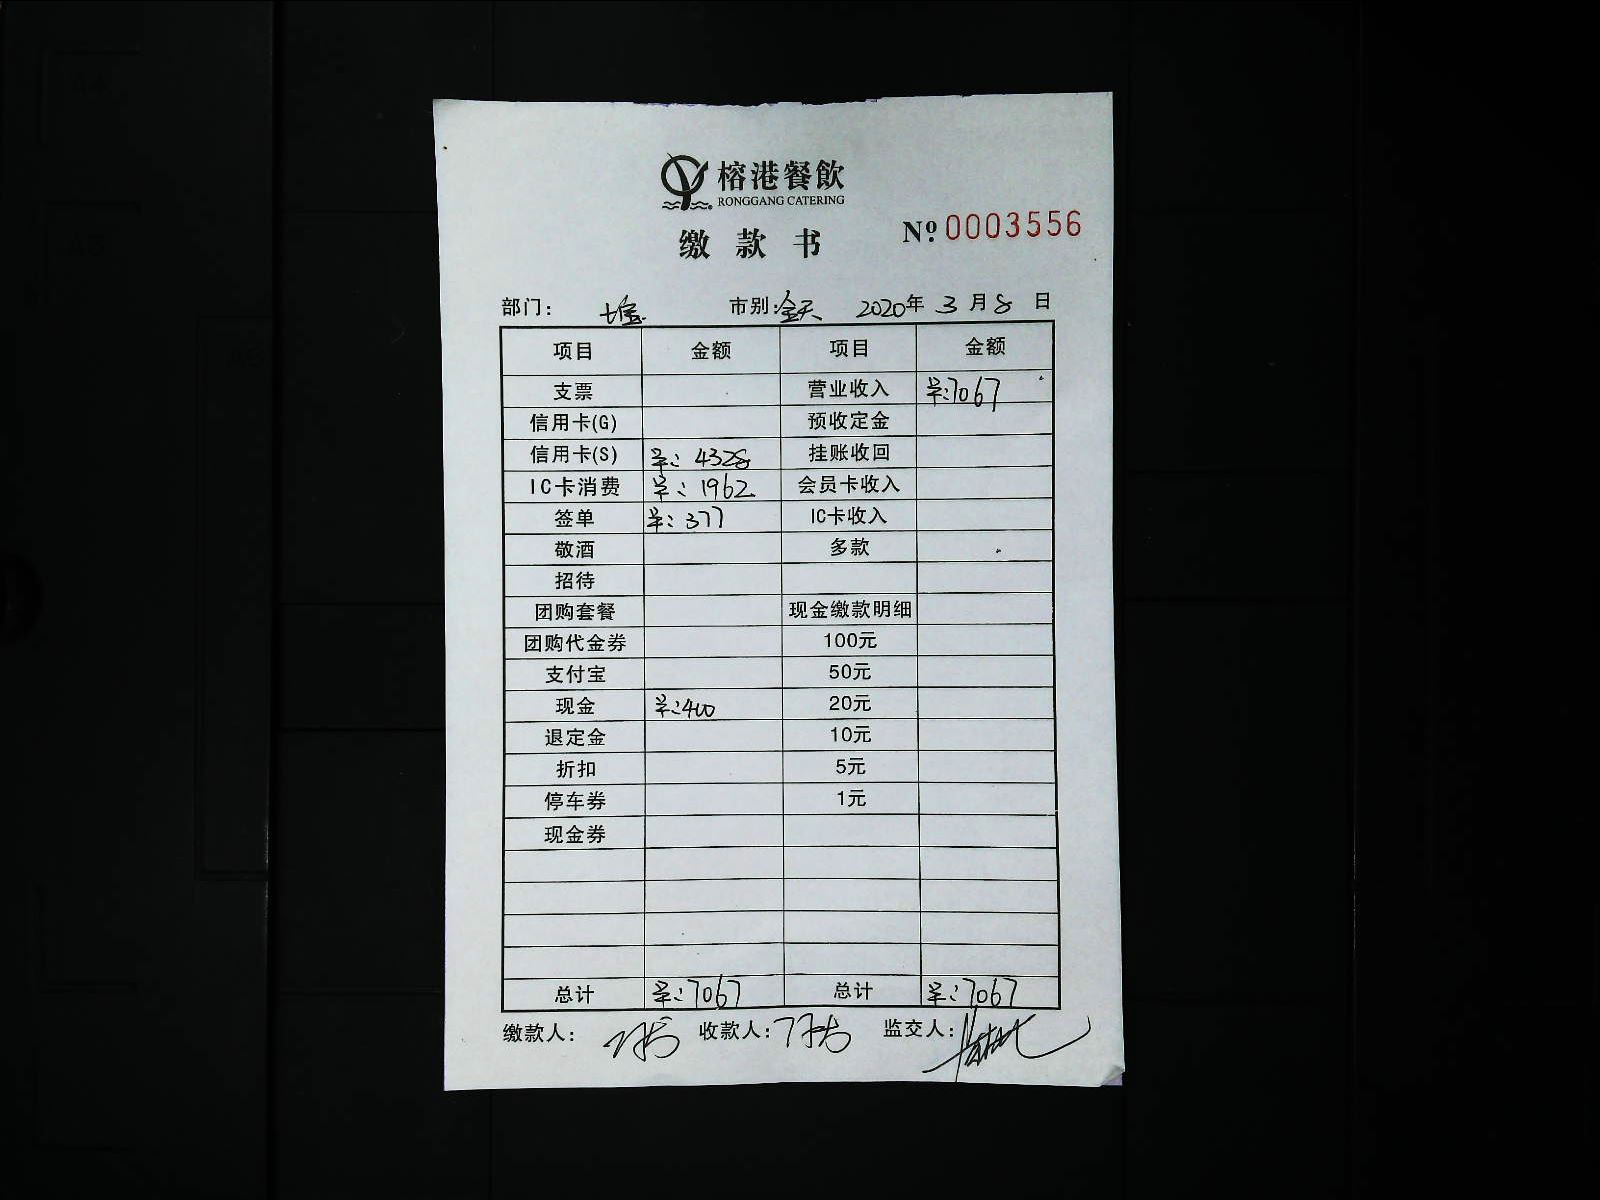 榕港餐飲
RONGGANG CATERING
缴款书 Nº 0003556
部门: 市别:全天 2020年3月8日
项目 金额 项目 金额
支票 营业收入 单:7067
信用卡(G) 预收定金
信用卡(S) 单:4328 挂账收回
IC卡消费 单:1962 会员卡收入
签单 单:377 IC卡收入
敬酒 多款
招待
团购套餐 现金缴款明细
团购代金券 100元
支付宝 50元
现金 单:400 20元
退定金 10元
折扣 5元
停车券 1元
现金券
总计 单:7067 总计 单:7067
缴款人: 收款人: 监交人: